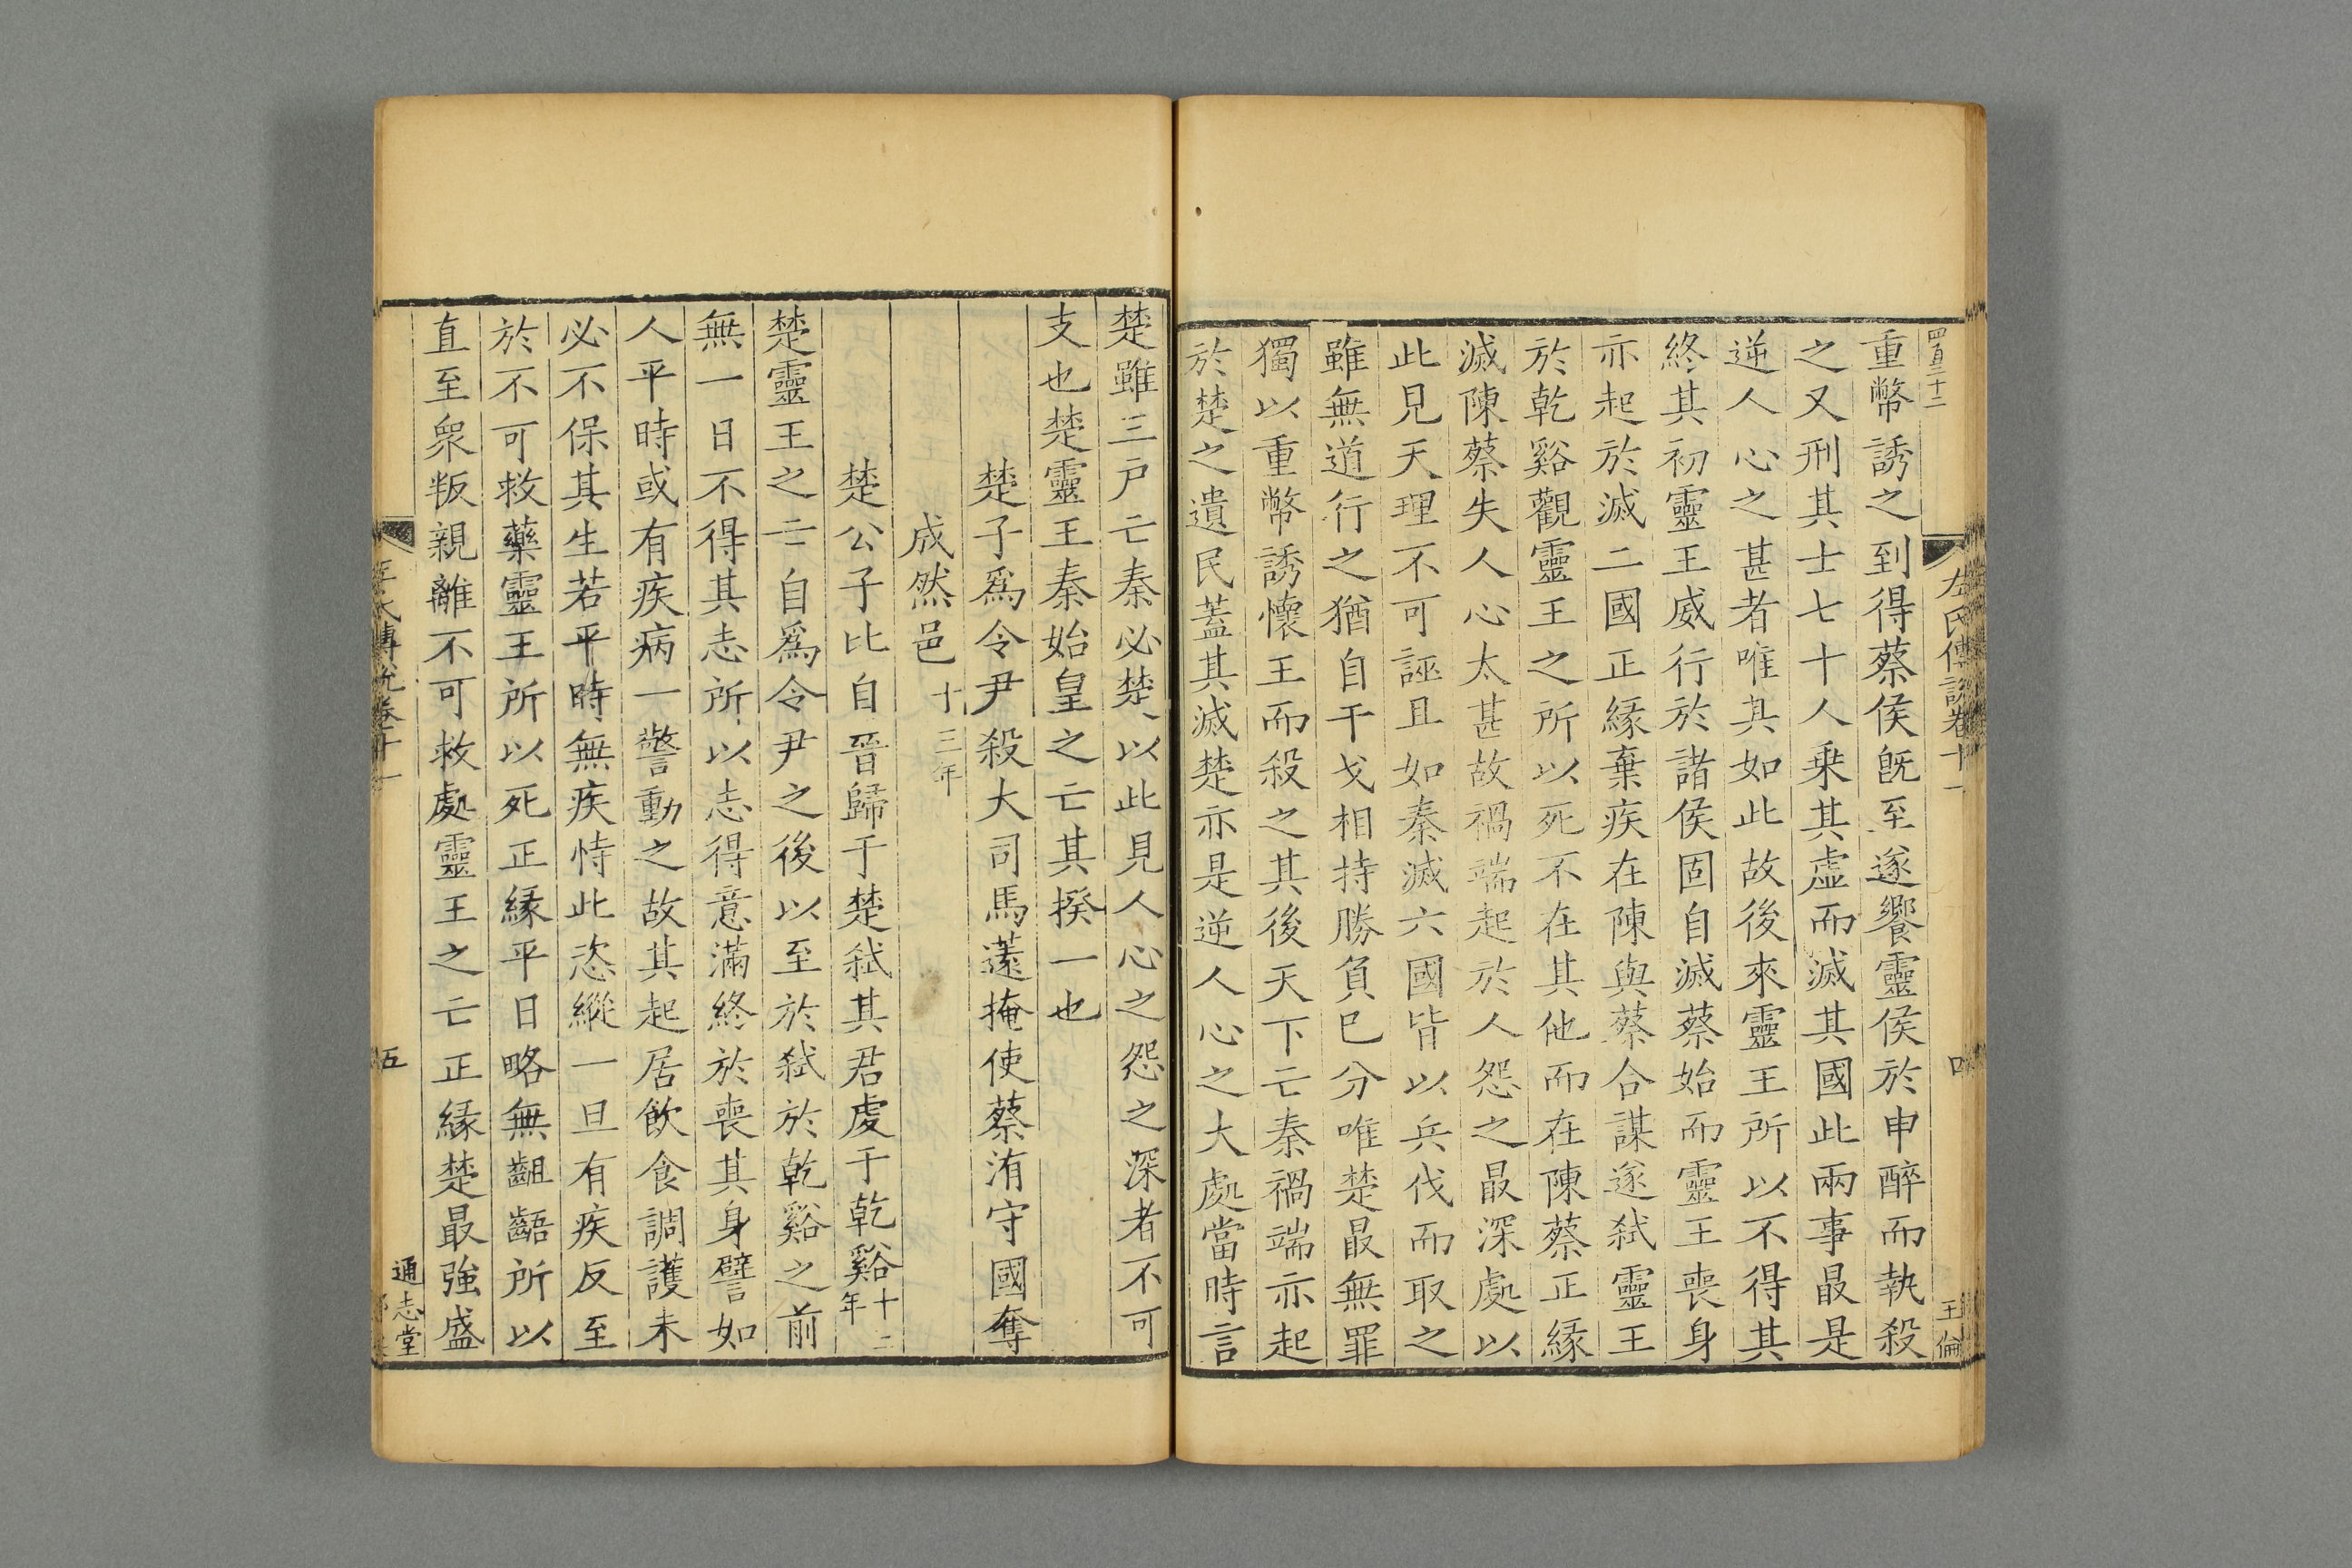 四百二十二
左氏傳說卷十一
四
王倫
重幣誘之到得蔡侯旣至遂饗靈侯於申醉而執殺
之又刑其士七十人乗其虛而滅其國此兩事最是
逆人心之甚者唯其如此故後來靈王所以不得其
終其初靈王威行於諸侯固自滅蔡始而靈王喪身
亦起於滅二國正緣棄疾在陳與蔡合謀遂弑靈王
於乾谿觀靈王之所以死不在其他而在陳蔡正緣
滅陳蔡失人心太甚故禍端起於人怨之最深處以
此見天理不可誣且如秦滅六國皆以兵伐而取之
雖無道行之猶自干戈相持勝負已分唯楚最無罪
獨以重幣誘懷王而殺之其後天下亡秦禍端亦起
於楚之遺民蓋其滅楚亦是逆人心之大處當時言
楚雖三戸亡秦必楚以此見人心之怨之深者不可
支也楚靈王秦始皇之亡其揆一也
楚子爲令尹殺大司馬薳掩使蔡洧守國奪
成然邑十三年
楚公子比自晉歸于楚弑其君虔于乾谿十二年
楚靈王之亡自爲令尹之後以至於弑於乾谿之前
無一日不得其志所以志得意滿終於喪其身譬如
人平時或有疾病一警動之故其起居飲食調護未
必不保其生若平時無疾恃此恣縱一旦有疾反至
於不可救藥靈王所以死正緣平日略無齟齬所以
直至衆叛親離不可救處靈王之亡正緣楚最強盛
左氏傳說卷十一
五
通志堂